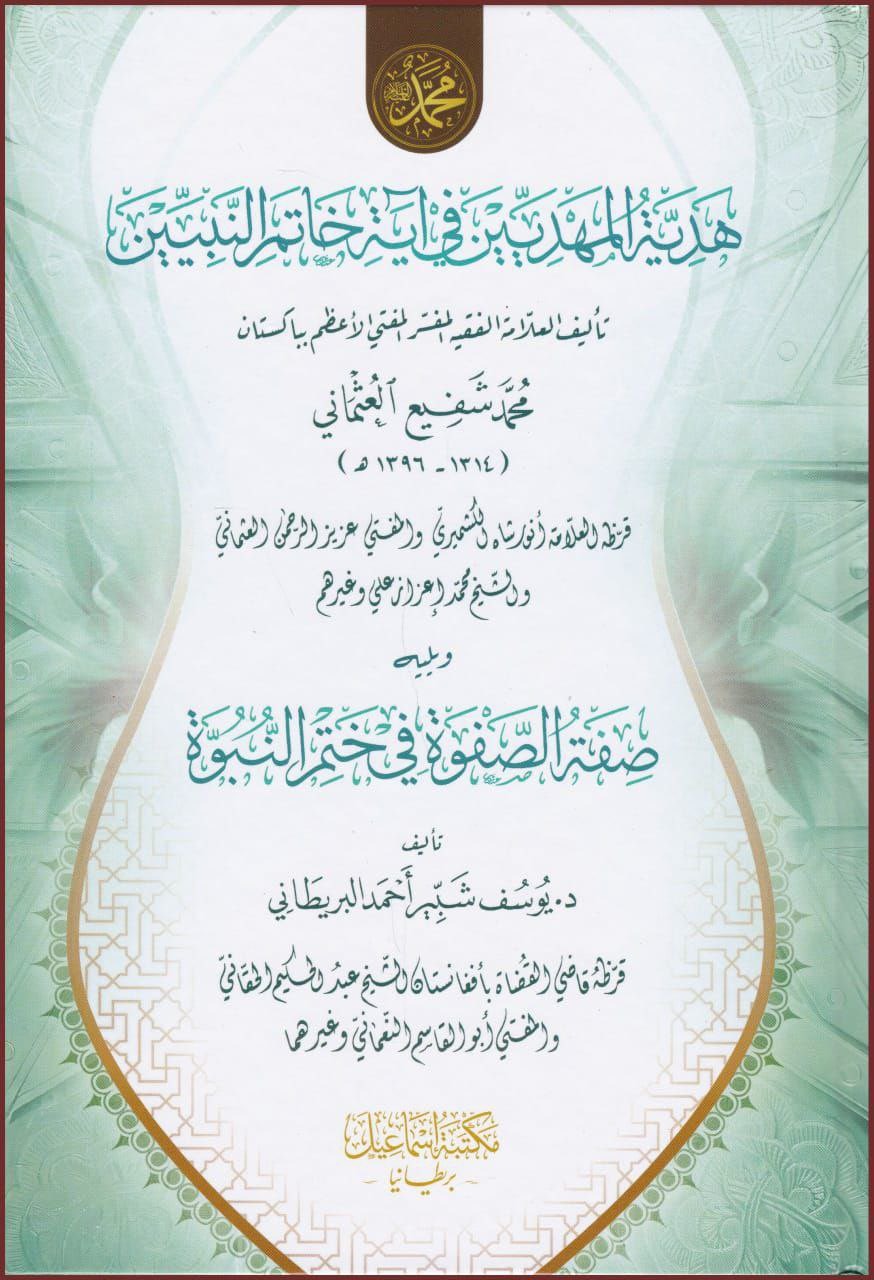 محمد ﷺ
هَدِيَّةُ المَهْدِيِّيْنَ فِي آيَةِ خَاتَمِ النَّبِيِّيْنَ
تأليف العلّامة الفقيه المفسّر المفتي الأعظم بباكستان
محمّد شَفِيع العُثمَاني
(١٣١٤ - ١٣٩٦ هـ)
قرّظه العلّامة أنور شاه الكشميريّ والمفتي عزيز الرحمن العثمانيّ
والشّيخ محمّد إعزاز علي وغيرهم
ويليه
صِفَةُ الصَّفْوَةِ فِي خَتْمِ النُّبُوَّةِ
تأليف
د. يُوسُف شَبِّير أَحمَد البريطَانِي
قرّظهُ قاضي القُضاة بأفغانستان الشّيخ عبدُ الحكيم الحقّانيّ
والمفتي أبو القاسم النّعمانيّ وغيرهما
مَكتبَة إسمَاعيل
- بريطانيا -